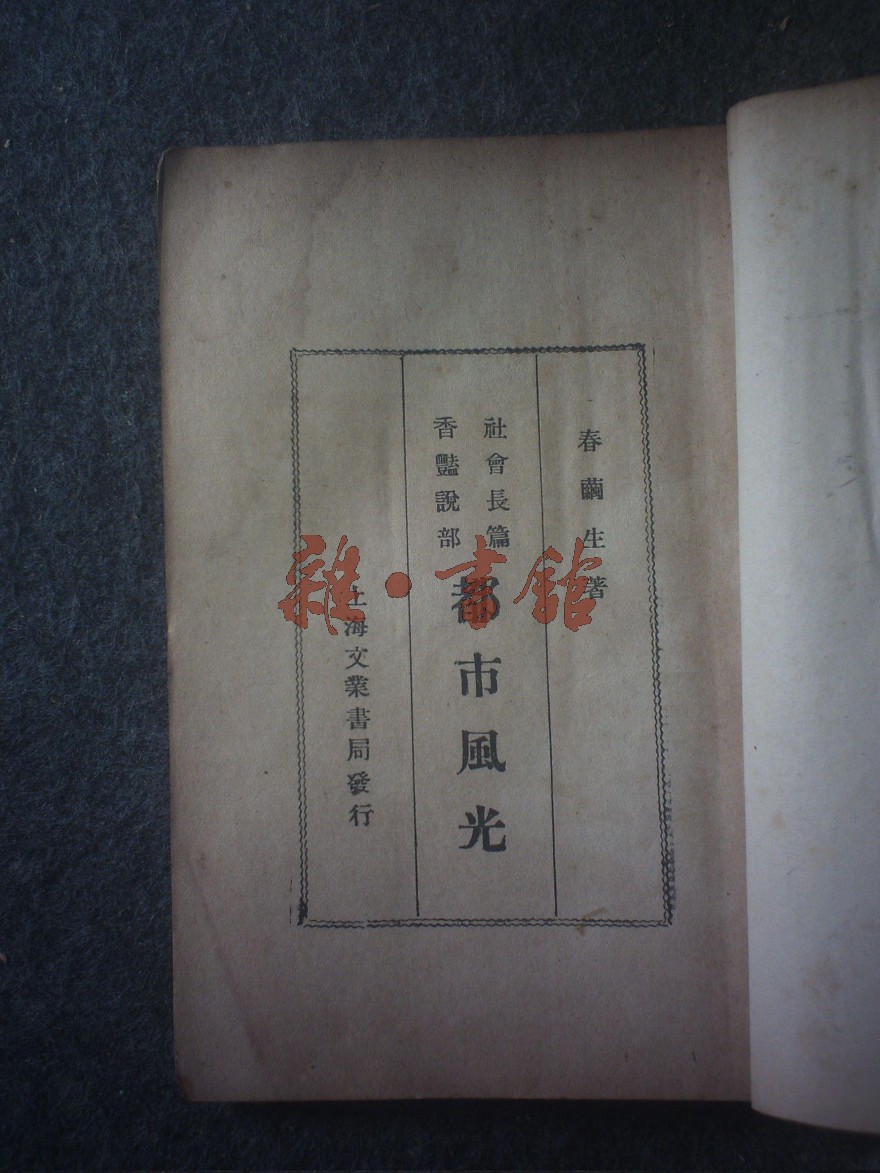 春繭生著
社會長篇
香豔說部
都市風光
上海文業書局發行
雜·書館